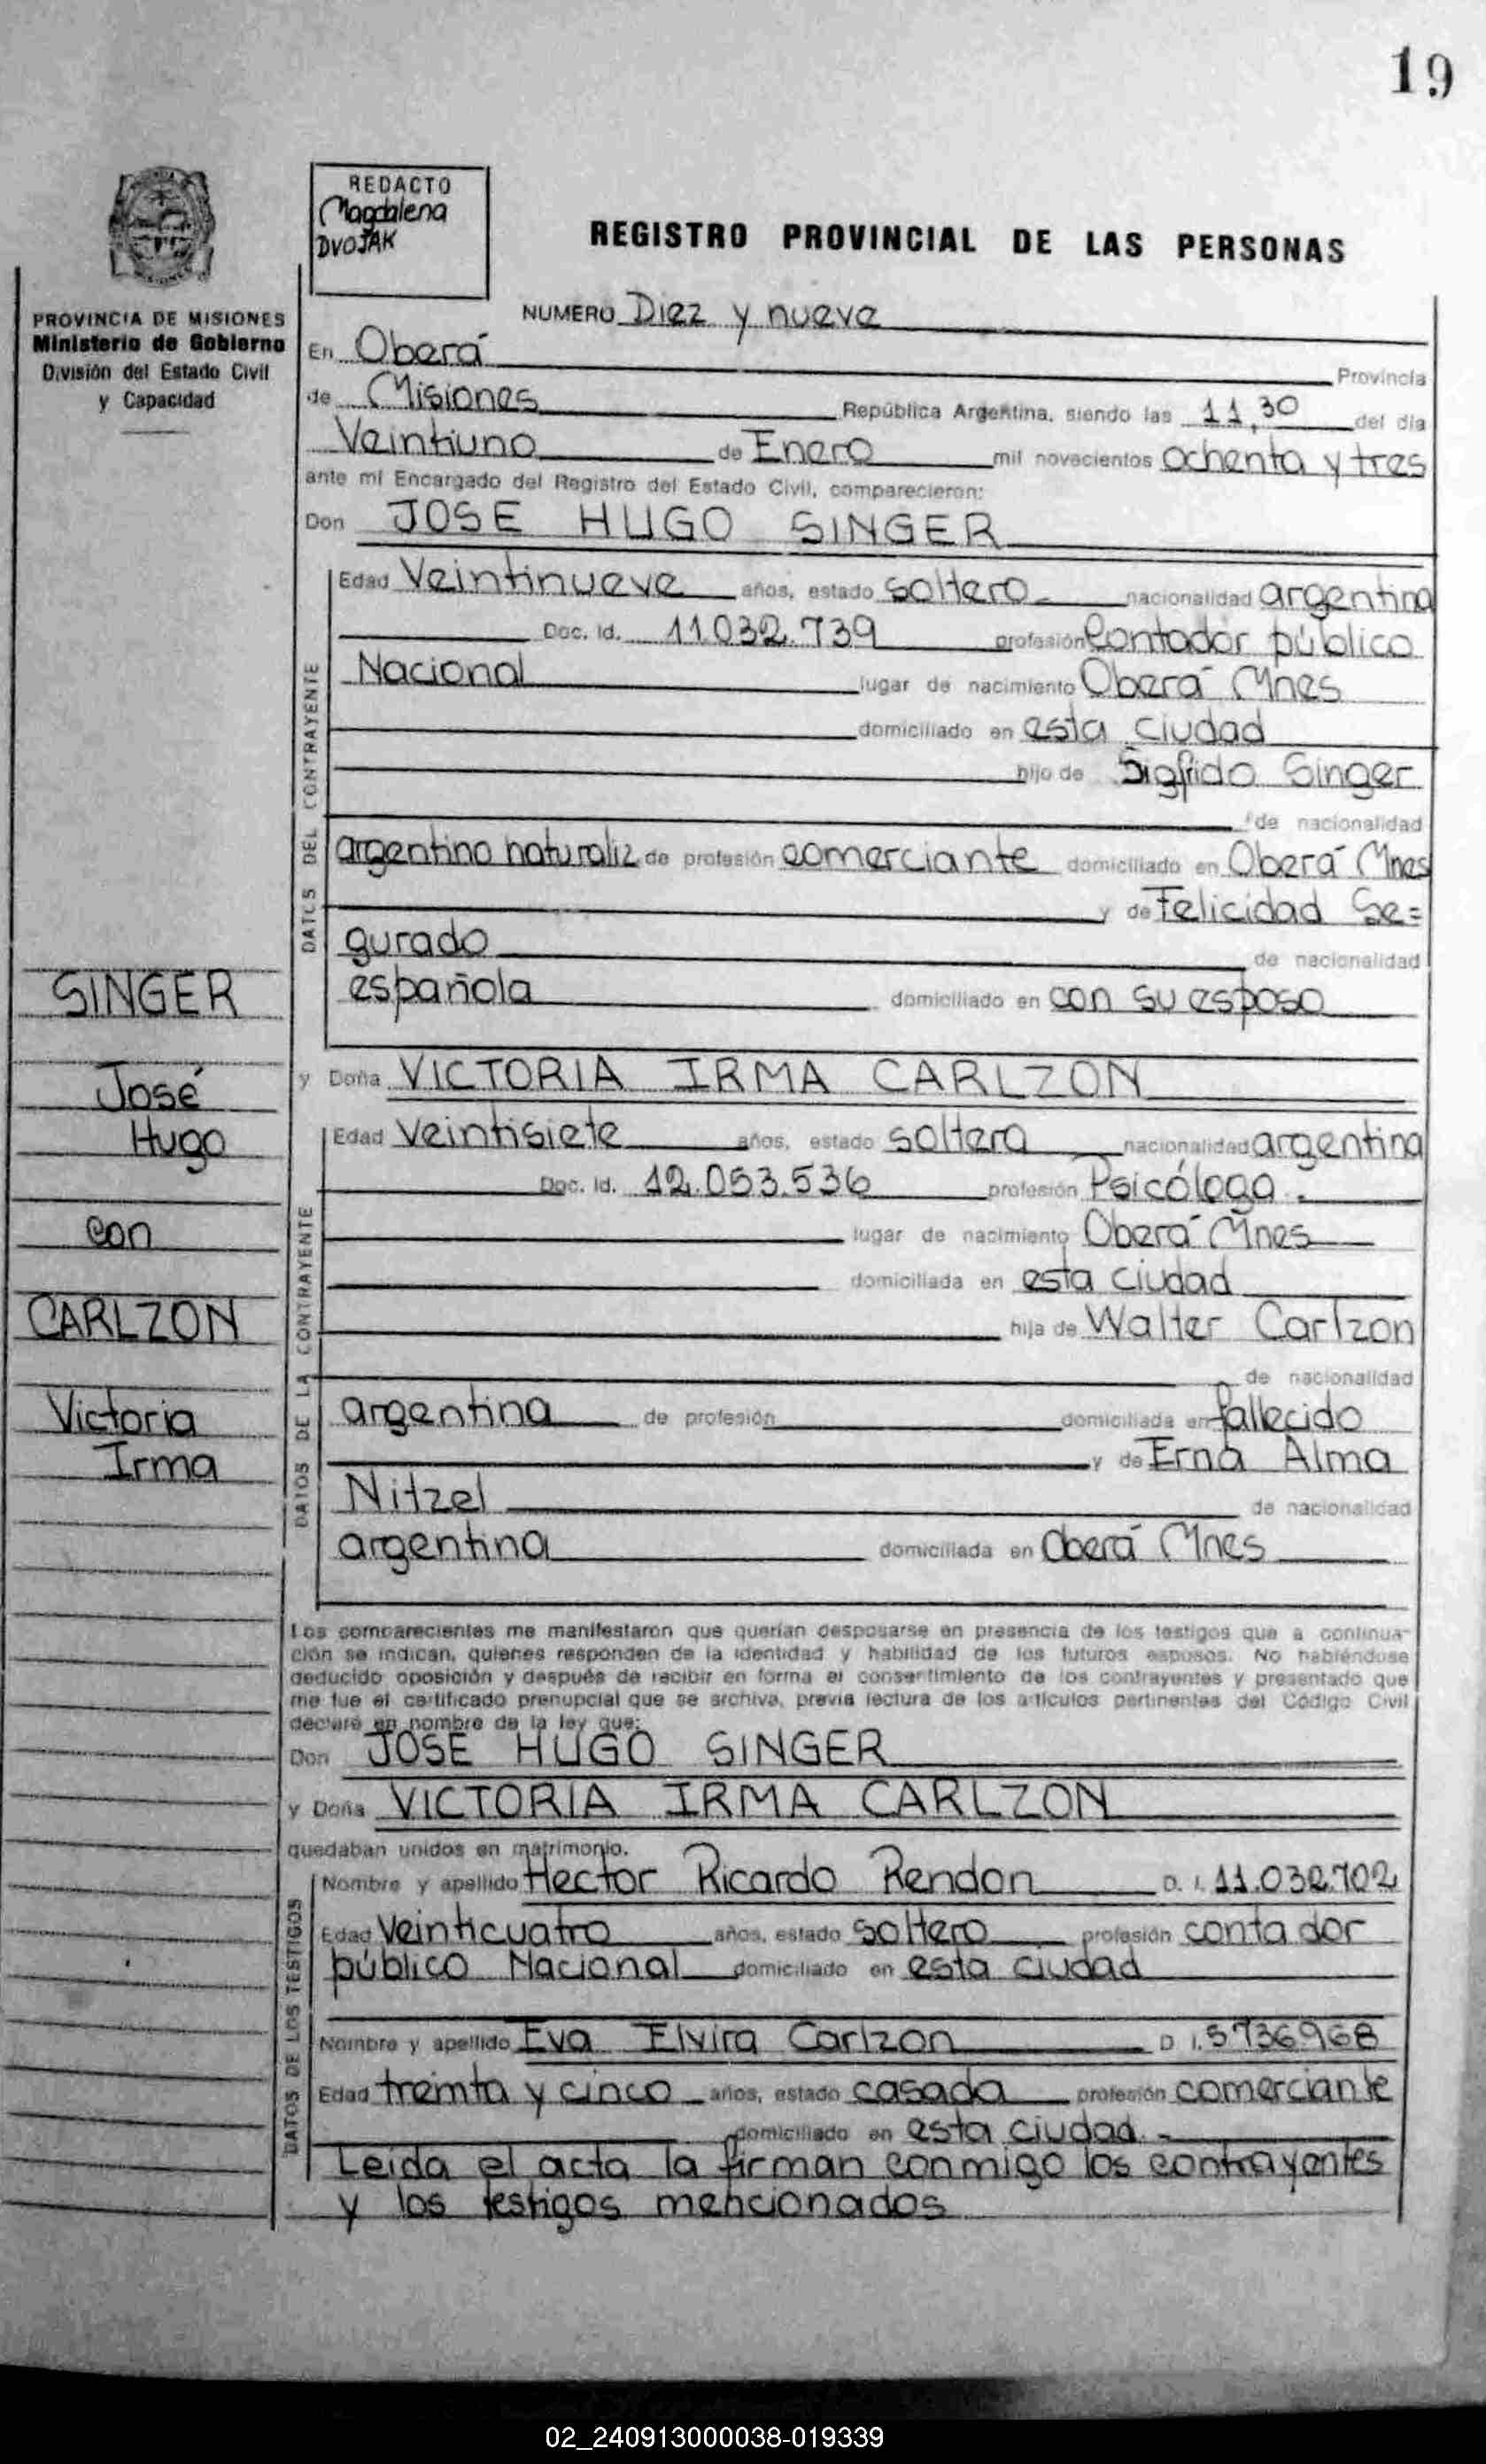 19
REDACTO
Magdalena
DVOJAK
REGISTRO PROVINCIAL DE LAS PERSONAS
PROVINCIA DE MISIONES
Ministerio de Gobierno
División del Estado Civil
y Capacidad
NUMERO Diez y nueve
En Oberá
Provincia
de Misiones República Argentina, siendo las 11,30 del día
Veintiuno de Enero mil novecientos ochenta y tres
ante mí Encargado del Registro del Estado Civil, comparecieron:
Don JOSE HUGO SINGER
DATOS DEL CONTRAYENTE
Edad Veintinueve años, estado soltero nacionalidad argentina
Doc. Id. 11.032.739 profesión Contador público
Nacional lugar de nacimiento Oberá Mnes
domiciliado en esta ciudad
hijo de Sigfrido Singer
de nacionalidad
argentino naturaliz de profesión comerciante domiciliado en Oberá Mnes
y de Felicidad Se=
gurado de nacionalidad
española domiciliado en con su esposo
y Doña VICTORIA IRMA CARLZON
DATOS DE LA CONTRAYENTE
Edad Veintisiete años, estado soltera nacionalidad argentina
Doc. Id. 12.053.536 profesión Psicóloga.
lugar de nacimiento Oberá Mnes
domiciliada en esta ciudad
hija de Walter Carlzon
de nacionalidad
argentina de profesión domiciliada en fallecido
y de Erna Alma
Nitzel de nacionalidad
argentina domiciliada en Oberá Mnes
SINGER
José
Hugo
con
CARLZON
Victoria
Irma
Los comparecientes me manifestaron que querían desposarse en presencia de los testigos que a continua-
ción se indican, quienes responden de la identidad y habilidad de los futuros esposos. No habiéndose
deducido oposición y después de recibir en forma el consertimiento de los contrayentes y presentado que
me fue el certificado prenupcial que se archiva, previa lectura de los artículos pertinentes del Código Civil
declaré en nombre de la ley que:
Don JOSE HUGO SINGER
y Doña VICTORIA IRMA CARLZON
quedaban unidos en matrimonio.
DATOS DE LOS TESTIGOS
Nombre y apellido Hector Ricardo Rendon D. I. 11.032.702
Edad Veinticuatro años, estado soltero profesión contador
público Nacional domiciliado en esta ciudad
Nombre y apellido Eva Elvira Carlzon D I. 5736968
Edad treinta y cinco años, estado casada profesión comerciante
domiciliado en esta ciudad.-
Leida el acta la firman conmigo los contrayentes
y los testigos mencionados
02_240913000038-019339